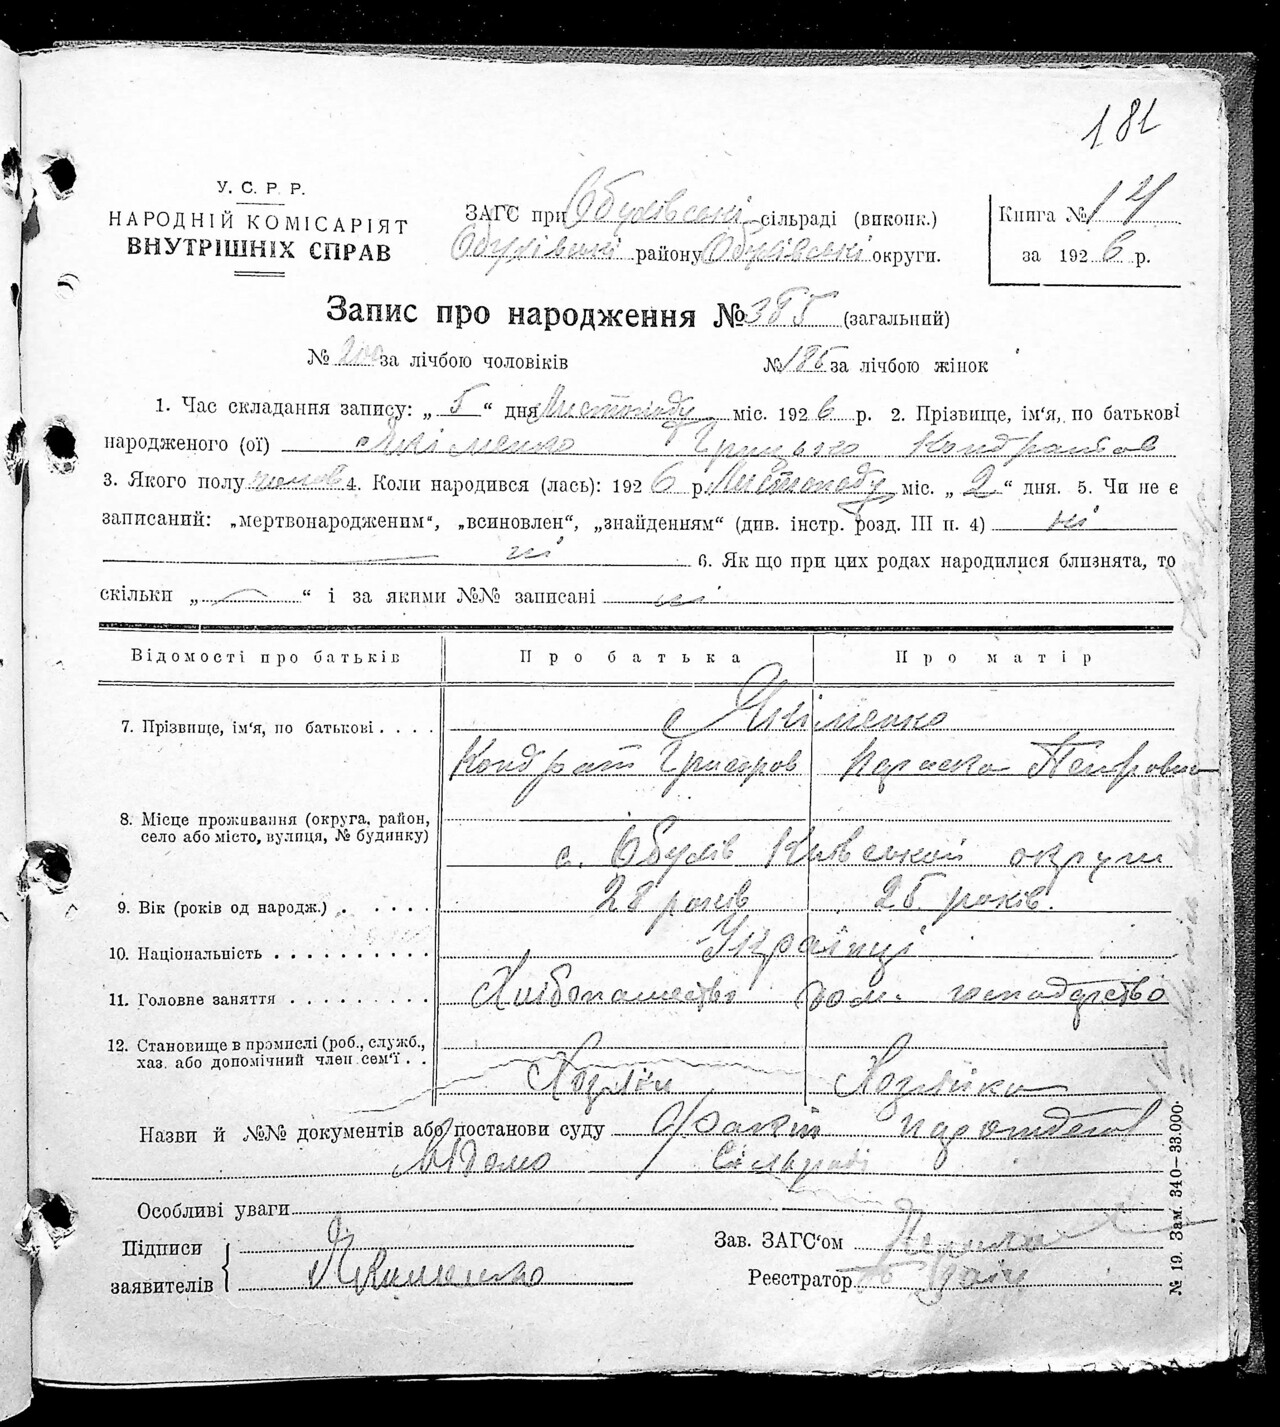 181
У. С. Р. Р.
НАРОДНІЙ КОМІСАРІЯТ
ВНУТРІШНІХ СПРАВ
ЗАГС при сільраді (виконк.)
району округи.
Книга № 14
за 1926 р.
Запис про народження № 385 (загальний)
№ 200 за лічбою чоловіків
№ 185 за лічбою жінок
1. Час складання запису: „ 5 “ дня Листопаду міс. 1926 р. 2. Прізвище, ім'я, по батькові
народженого (ої) Якіменко Грицько Кондратов
3. Якого полу чолов 4. Коли народився (лась): 1926 р. Листопаду міс. „ 2 “ дня. 5. Чи не є
записаний: „мертвонародженим“, „всиновлен“, „знайденням“ (див. інстр. розд. III п. 4) ні
ні 6. Як що при цих родах народилися близнята, то
скільки „ — “ і за якими №№ записані ні
Відомості про батьків
Про батька
Про матір
7. Прізвище, ім'я, по батькові . . . .
Якіменко
Кондрат Григоров
Параска Петровна
8. Місце проживання (округа, район,
село або місто, вулиця, № будинку)
с. Обухів Київської округи
9. Вік (років од народж.) . . . . .
28 років
25 років.
10. Національність . . . . . . . . . .
Українці
11. Головне заняття . . . . . . . . .
Хлібопашество
дом. господарство
12. Становище в промислі (роб., служб.,
хаз. або допомічний член сем'ї . .
Хозяїн
Хозяйка
Назви й №№ документів або постанови суду Факт народження
відомо Сільраді
Особливі уваги
Підписи
заявителів
Якименко
Зав. ЗАГС'ом
Реєстратор
№ 19. Зам. 340—33.000.